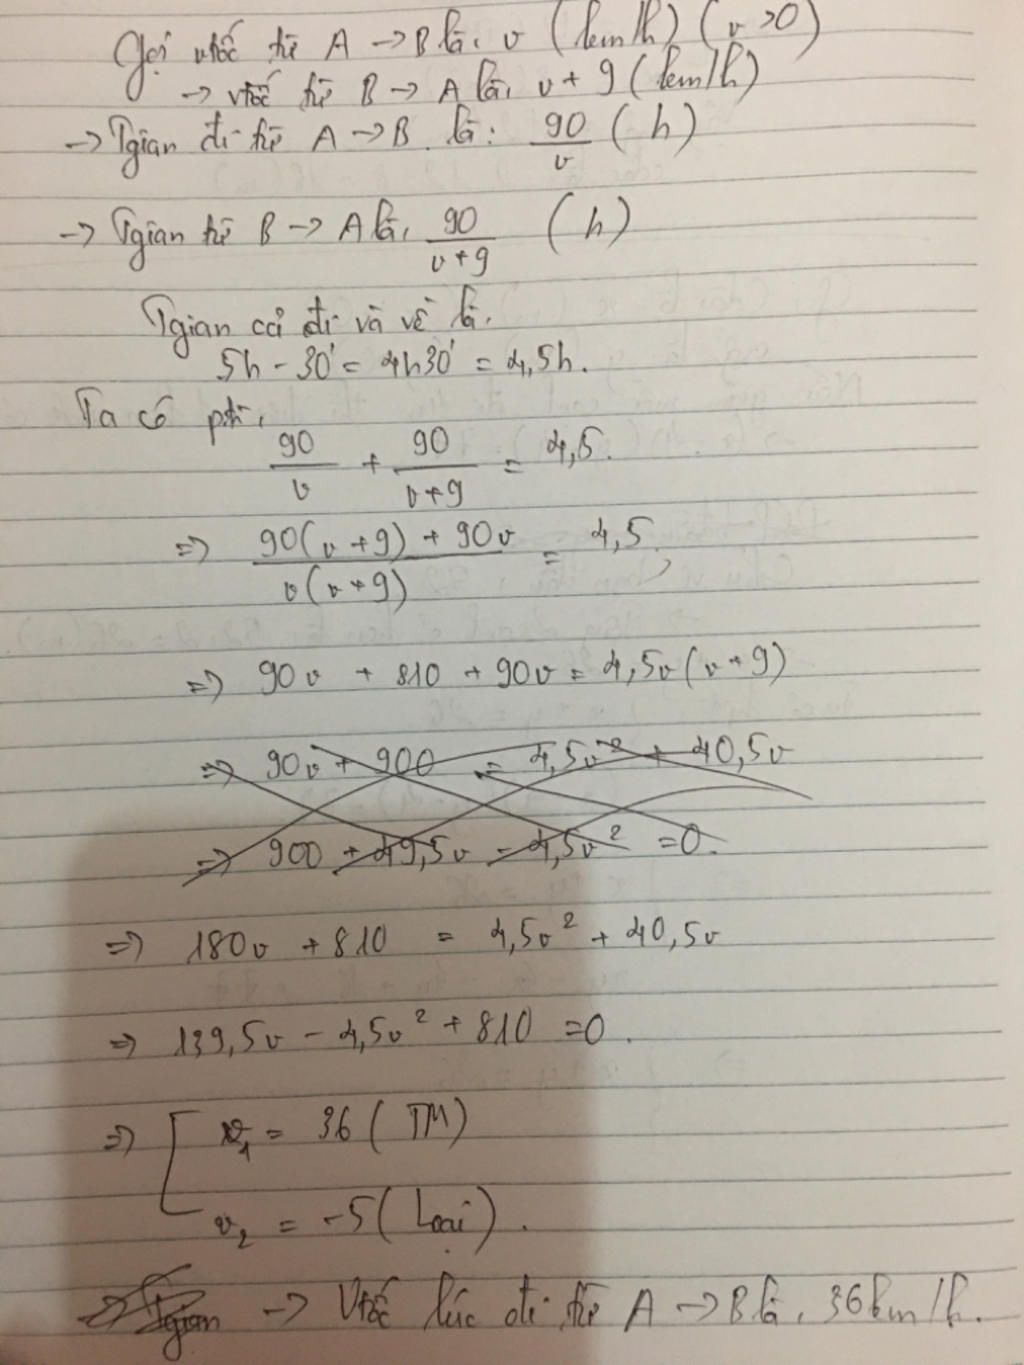 Gọi vtốc từ A → B là: v (km/h) (v >0)
→ vtốc từ B → A là: v + 9 (km/h)
→ Tgian đi từ A → B là: 90/v (h)
→ Tgian từ B → A là: 90/(v+9) (h)
Tgian cả đi và về là:
5h - 30' = 4h30' = 4,5h.
Ta có pt:
90/v + 90/(v+9) = 4,5.
=> (90(v+9) + 90v)/(v(v+9)) = 4,5
=> 90v + 810 + 90v = 4,5v(v+9)
=> 90v + 900 = 4,5v² + 40,5v
=> 900 + 49,5v - 4,5v² =0.
=> 180v + 810 = 4,5v² + 40,5v
=> 139,5v - 4,5v² + 810 =0.
=> [ v₁ = 36 (TM)
v₂ = -5 (Loại).
→ Tgian → Vtốc lúc đi từ A → B là: 36km/h.